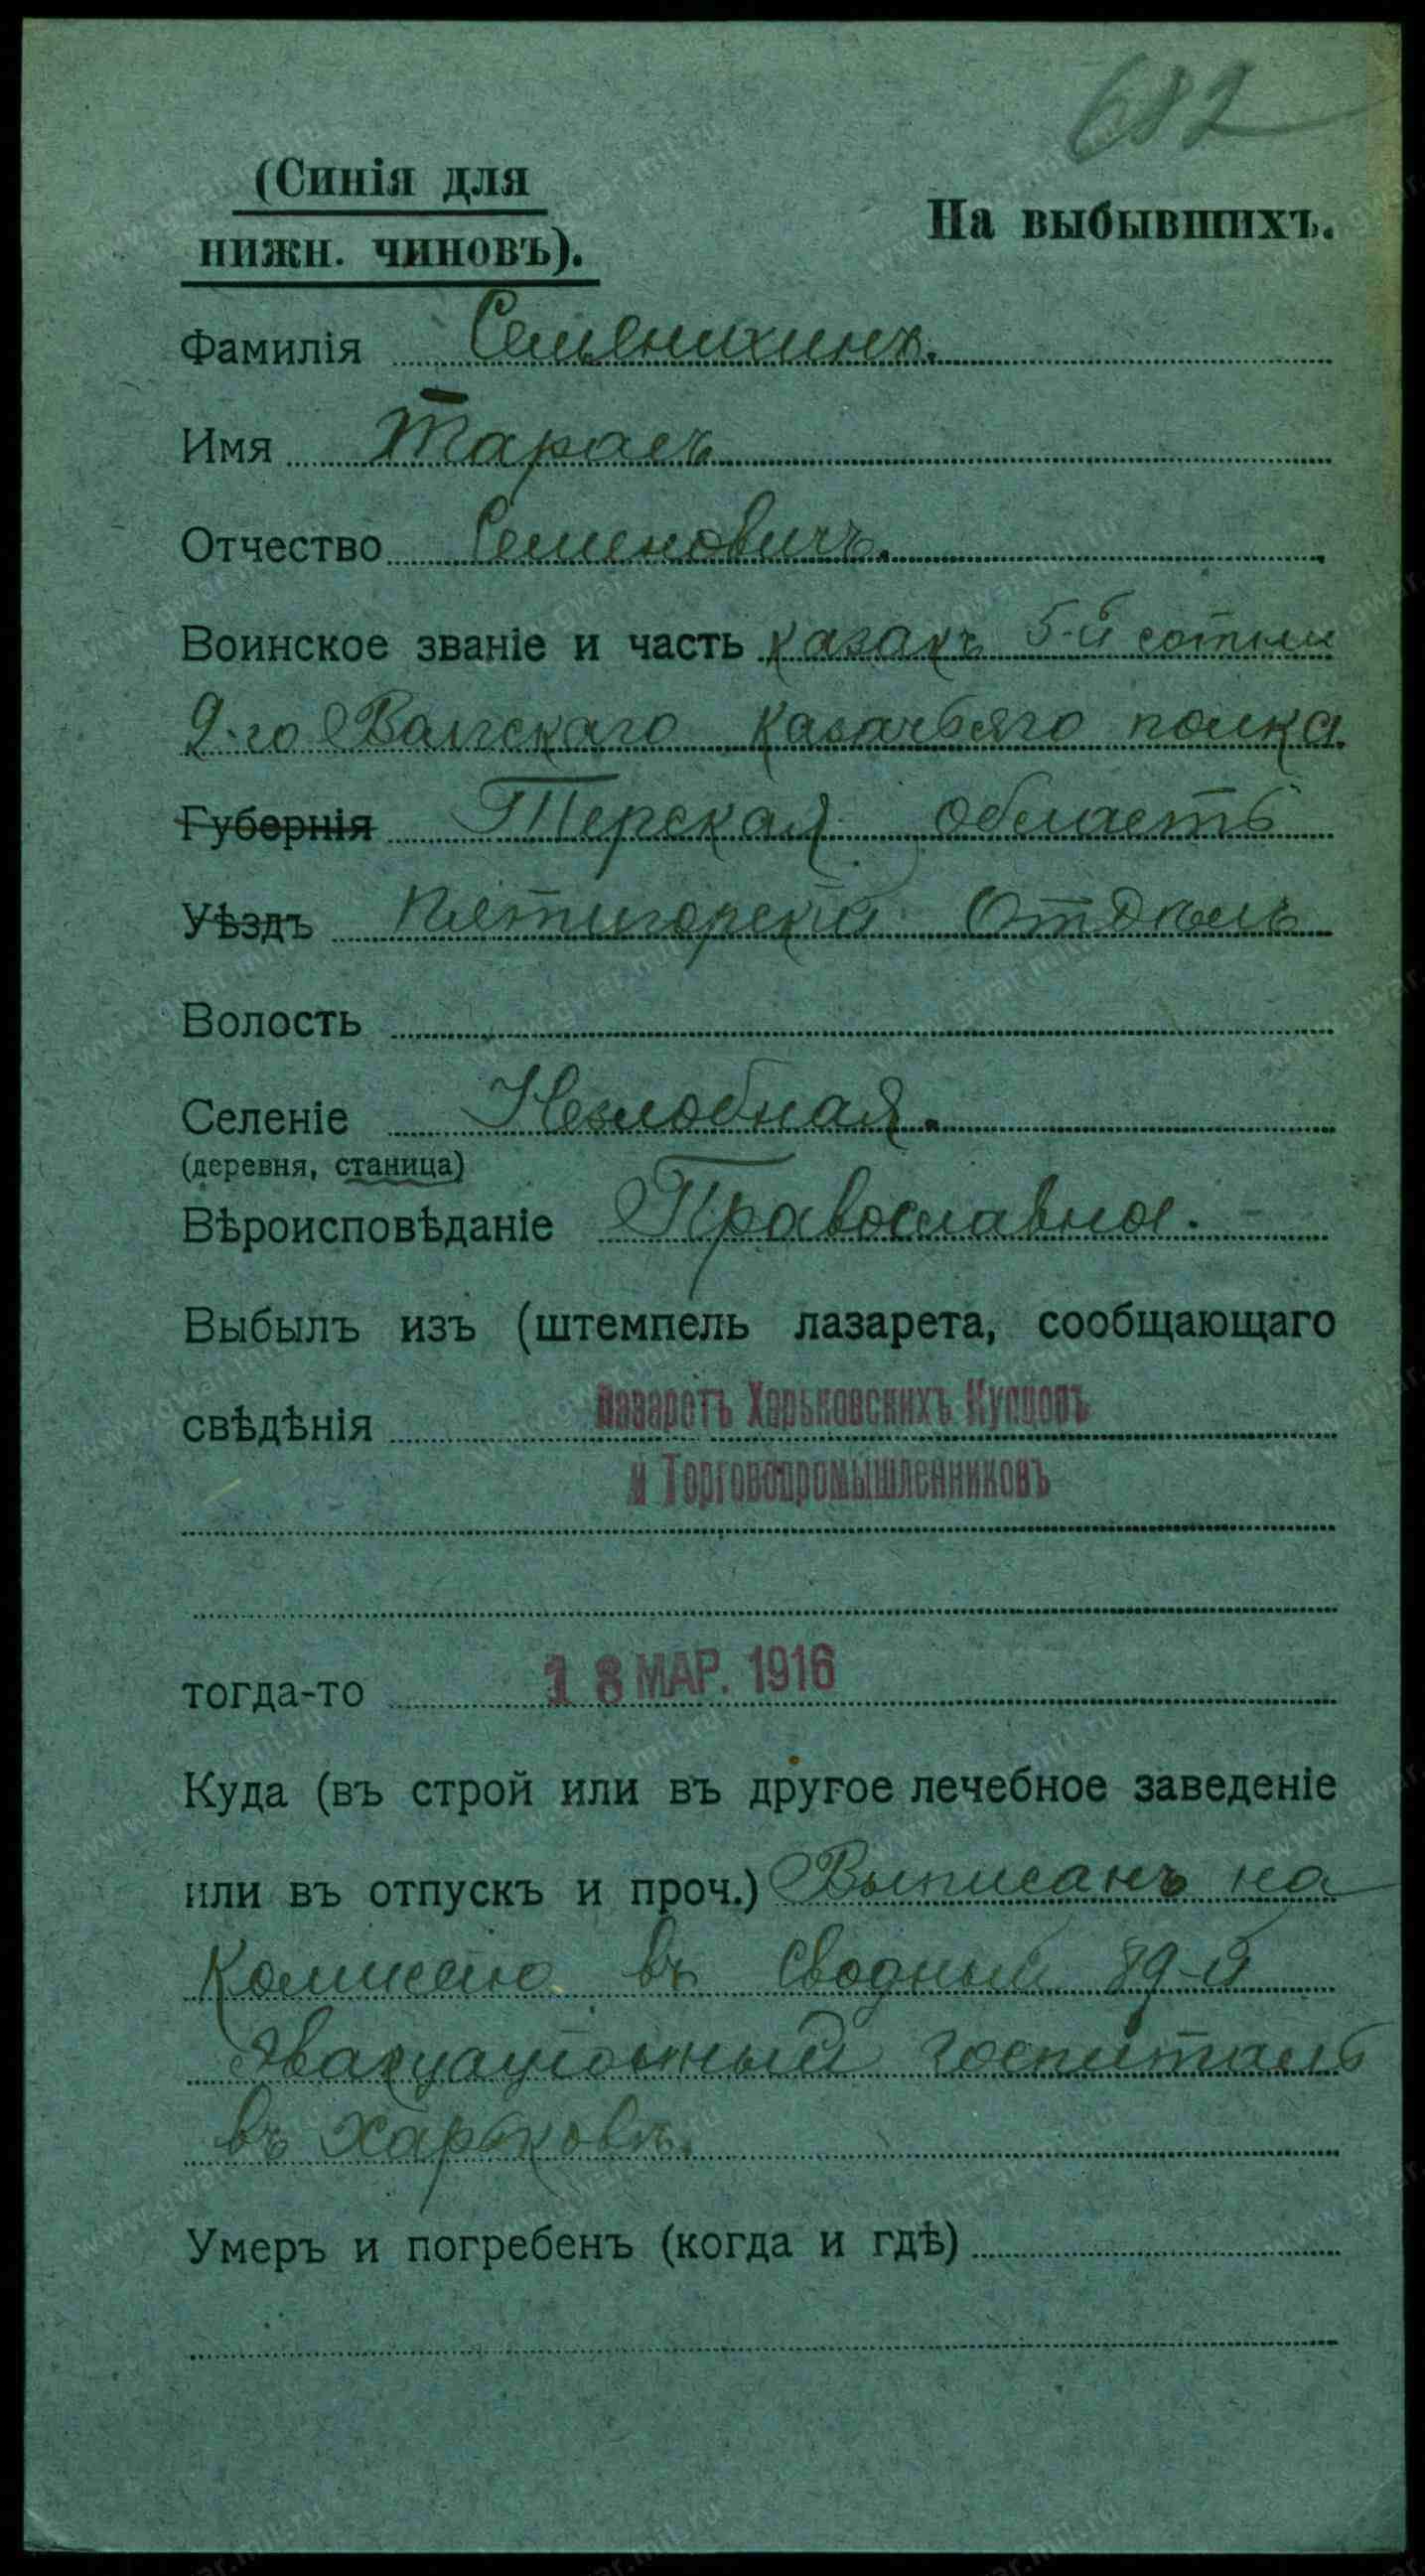 682
(Синія для
нижн. чиновъ).
На выбывшихъ.
Фамилія Семенихинъ.
Имя Тарасъ
Отчество Семеновичъ.
Воинское званіе и часть казакъ 5-й сотни
2-го Волгскаго казачьяго полка.
Губернія Терская область
Уѣздъ Пятигорскій Отдѣлъ
Волость
Селеніе Незлобная.
(деревня, станица)
Вѣроисповѣданіе Православное.
Выбылъ изъ (штемпель лазарета, сообщающаго
свѣдѣнія Лазаретъ Харьковскихъ Купцовъ
и Торговопромышленниковъ
тогда-то 18 МАР. 1916
Куда (въ строй или въ другое лечебное заведеніе
или въ отпускъ и проч.) Выписанъ на
Комиссію въ Сводный 89-й
Эвакуаціонный госпиталь
въ Харьковѣ.
Умеръ и погребенъ (когда и гдѣ)